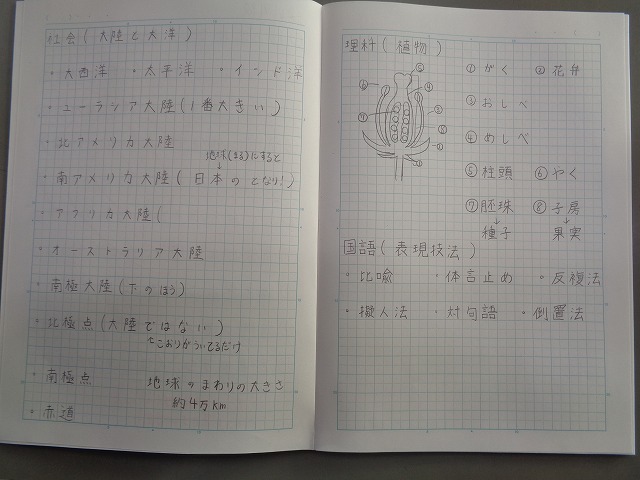 社会(大陸と大洋)
・大西洋 ・太平洋 ・インド洋
・ユーラシア大陸(1番大きい)
・北アメリカ大陸
地球(まる)にすると
↓
・南アメリカ大陸(日本のとなり!)
・アフリカ大陸(
・オーストラリア大陸
・南極大陸(下のほう)
・北極点(大陸ではない)
こおりがういてるだけ
・南極点 地球のまわりの大きさ
約4万km
・赤道
理科(植物)
①がく ②花弁
③おしべ
④めしべ
⑤柱頭 ⑥やく
⑦胚珠 ⑧子房
↓ ↓
種子 果実
国語(表現技法)
・比喩 ・体言止め ・反複法
・擬人法 ・対句語 ・倒置法